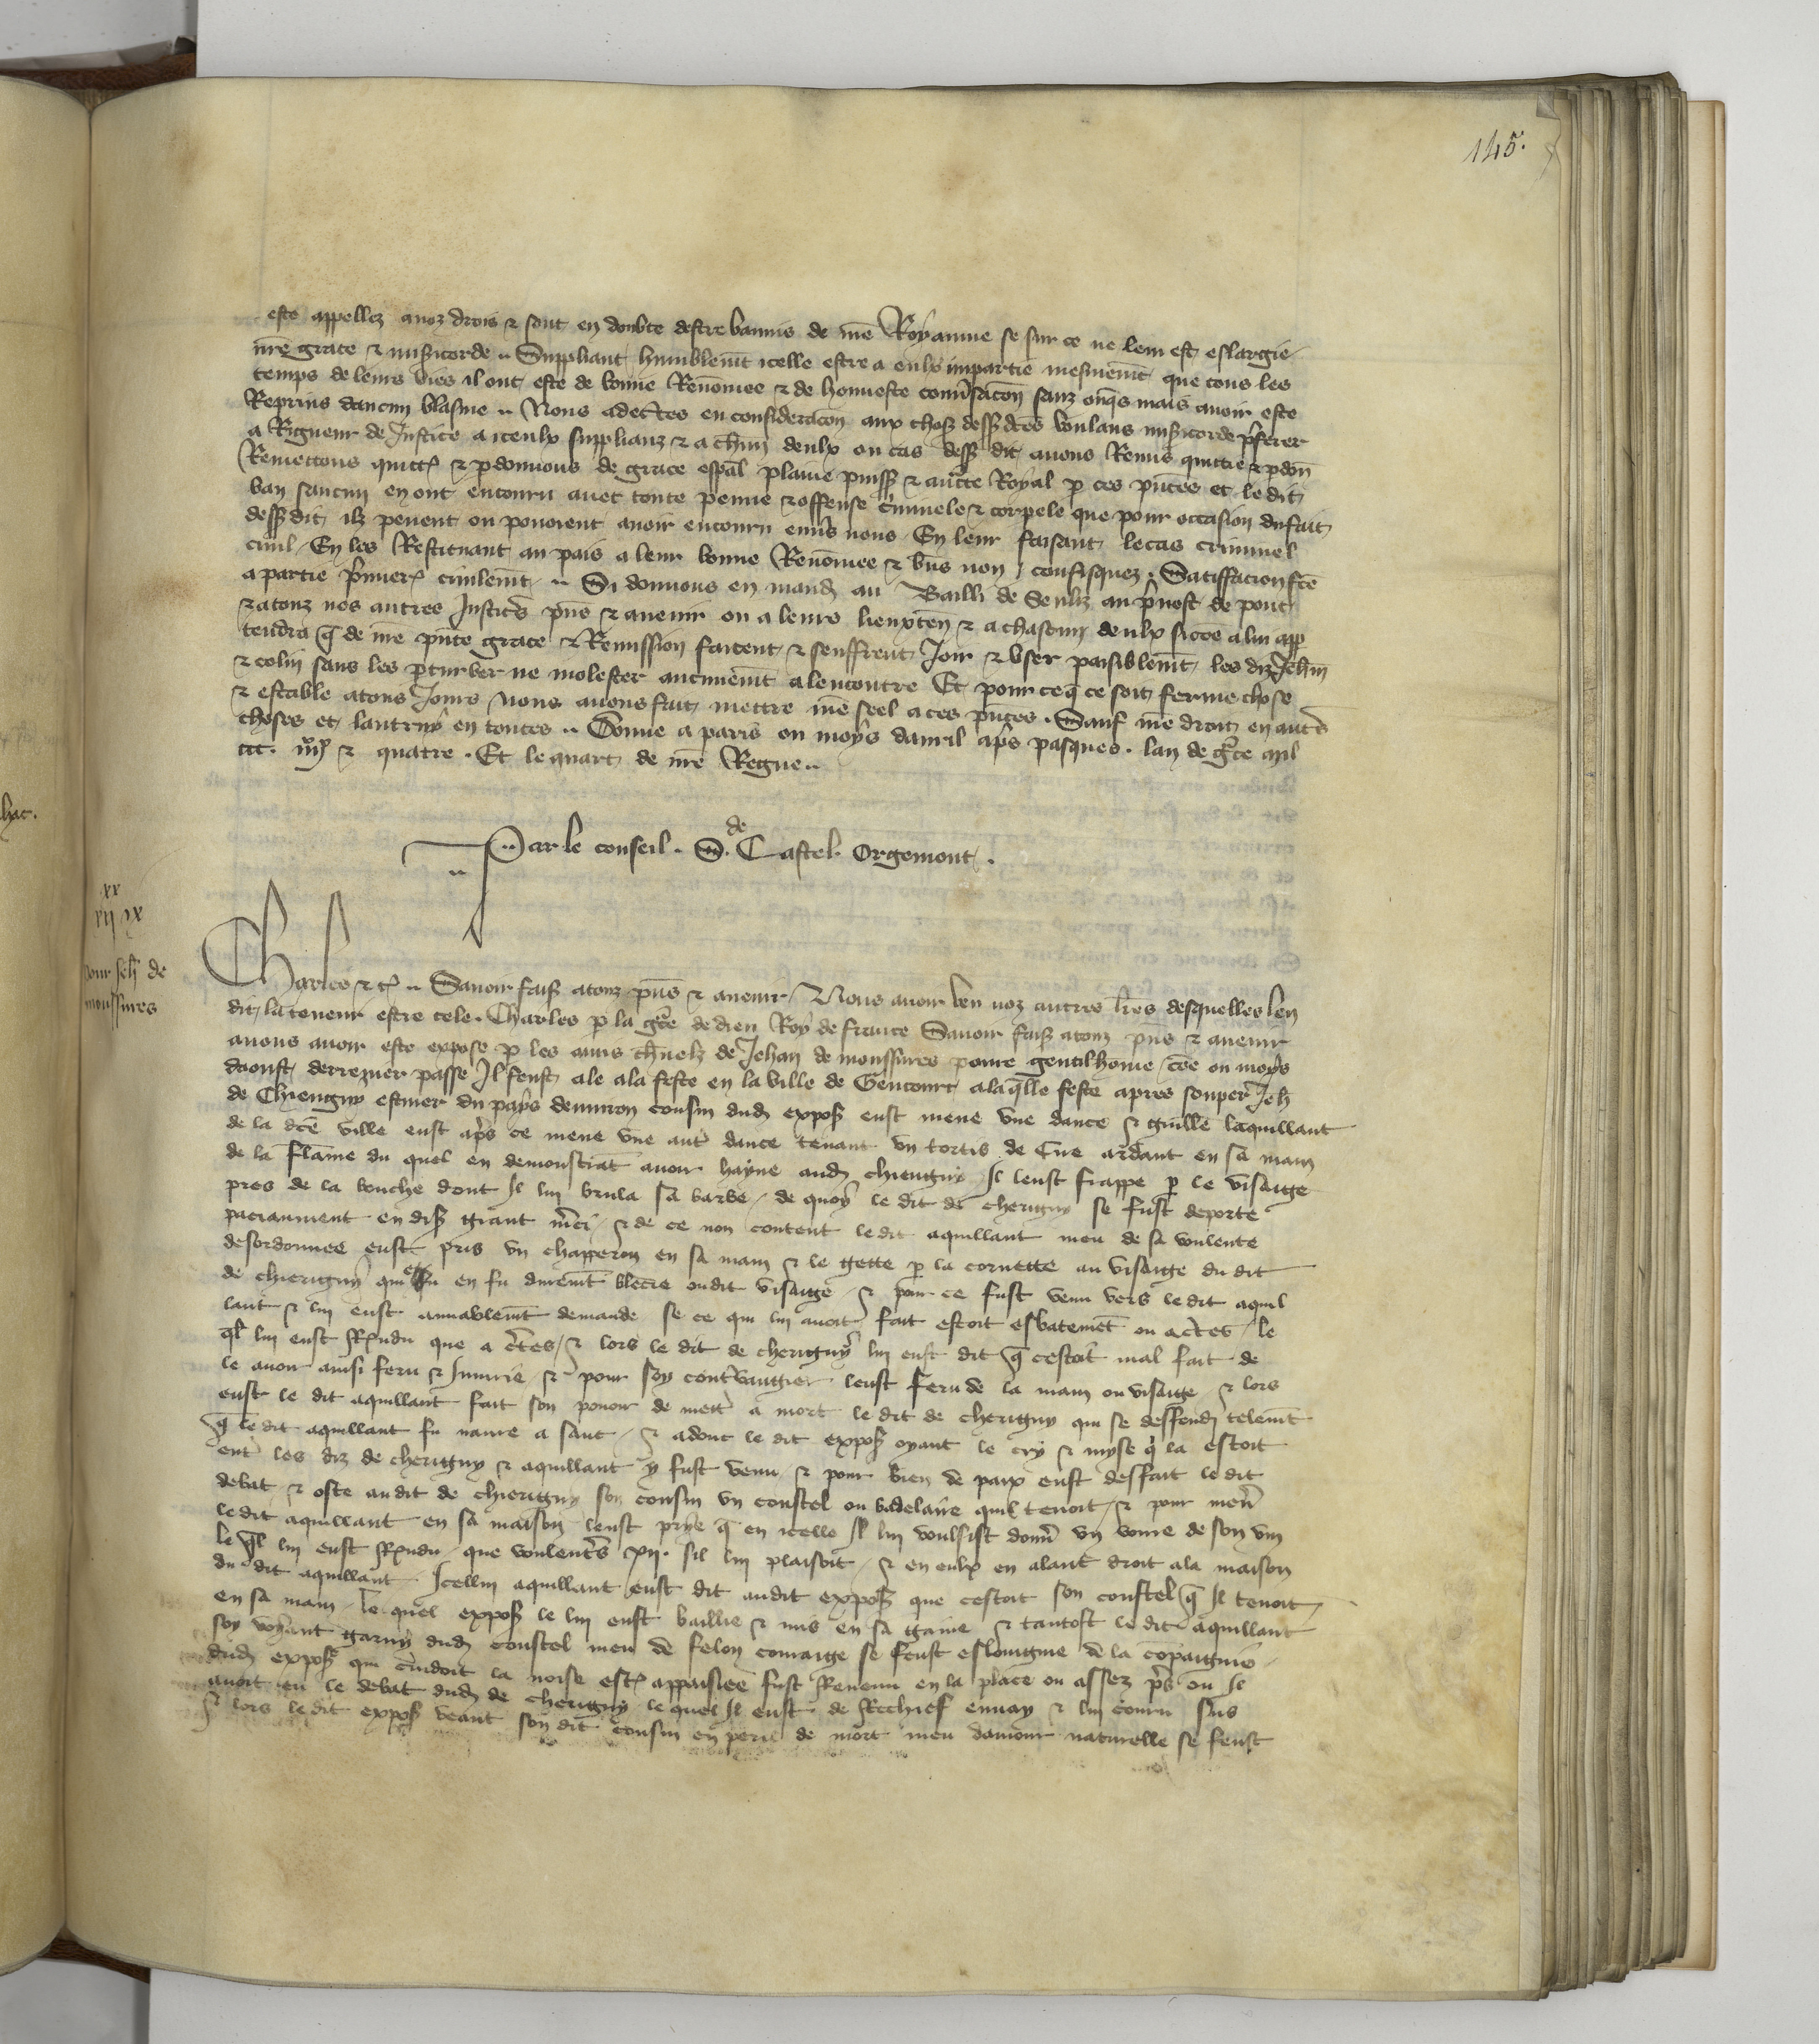 145.
este appellez a noz drois & sont en doubte destre bannis de nre Royaume se sur ce ne leur est eslargie
nre grace & misicorde .. Suppliant humblemt icelle estre a eulx impartie mesmemt que tous les
temps de leurs vies il ont este de bonne Renommee & de honneste conusacon sanz onqs mais avoir este
Reprins daucun blasme .. Nous adectes en consideracon aux choses dess dces voulans misicorde pferer
a Rigueur de Justice a iceulx supplianz & a chun deulx ou cas dess dit avons Remis quittie & pdon
Remettons quittos & pdonnons de grace espal plaine puiss & aucte Royal p ces pntes et le dit
ban saucun en ont encouru avec toute peinne & offense cminele & corpele que pour occasion du fait
dess dit ilz pevent ou povoient avoir encouru envs nous En leur faisant le cas criminel
civil En les Restituant au pais a leur bonne Renommee & bns non confisquez . Satiffacion fce
a partie pmiers civilemt .. Si donnons en mand au Bailli de Senliz au pvost de pont
& a touz nos autres Justics pns & avenir ou a leurs lieuxten & a chascun deulx si coe a lui app
tendra q de nre pnte grace & Remission facent & seuffrent Joir & user paisiblemt les diz Jehan
& colin sans les pturber ne molester aucunemt alencontre Et pour ce q ce soit ferme chose
& estable a tous Jours Nous avons fait mettre nre seel a ces pntes . Sauf nre droit en autres
choses et lautruy en toutes .. Donne a paris ou moys davril aps pasques . lan de gce mil
ccc . iiiixx & quatre . Et le quart de nre Regne ..
Par le conseil . S. de Castel . Orgemont .
xx
vii ix
pour Jeh de
moussures
Charles & c .. Savoir fais a touz pns & avenir Nous avoir veu noz autres lres desquelles len
dit la teneur estre tele . Charles p la gce de dieu Roy de france Savoir fais a touz pns & avenir
a nous avoir este expose p les amis chnelz de Jehan de moussures povre gentilhomme / coe ou moys
daoust derrenier passe Il feust ale a la feste en la ville de Gencourt a laqlle feste apres souper Jeh
de Chierigny escuier du pays denviron cousin dud expos eust mene une dance & Guille laquillant
de la dce ville eust aps ce mene une aut dance tenant un tortis de Cire ardant en sa main
de la flamme du quel en demonstrat avoir hayne aud chierigny Il leust frappe p le visaige
pres de la bouche dont Il lui brula sa barbe / de quoy le dit de cherigny se fust deporte
paciamment en dis grant mci / & de ce non content le dit aquillant meu de sa voulente
desordonnee eust pris un chapperon en sa main & le gette p la cornette au visaige du dit
de chierigny qui en fu durement blecie ou dit visaige / & pour ce fust venu vers le dit aquil
lant & lui eust amiablemt demande se ce qui lui avoit fait estoit esbatemet ou actes / le
ql lui eust Respondu que a ctes / & lors le dit de cherigny lui eust dit q cestoit mal fait de
le avoir ainsi feru & Jniurie / & pour soy contrvangier leust feru de la main ou visaige / & lors
eust le dit aquillant fait son povoir de mett a mort le dit de cherigny qui se deffendi telemt
q le dit aquillant fu navre a sanc / & adonc le dit expos oyant le cry & noyse q la estoit
ent les diz de cherigny & aquillant y fust venu & pour bien de paix eust deffait le dit
debat & oste au dit de chierigny son cousin un coustel ou badelaire quil tenoit / & pour mener
le dit aquillant en sa maison leust prye q en icelle Il lui voulsist donner un voirre de son vin
le ql lui eust Respondu que voulents xii . sil lui plaisoit / & en eulx en alant droit a la maison
du dit aquillant Icellui aquillant eust dit audit expos que cestoit son coustel q Il tenoit
en sa main / le quel expos le lui eust baillie & mis en sa gaine & tantost le dit aquillant
soy voyant garny dud coustel meu de felon couraige se feust eslongnie de la compaignie
dud expos qui cuidoit la noise estre appaisiee fust Revenu en la place ou assez ps ou Il
avoit eu le debat dud de cherigny le quel Il eust de Rechief envay & lui couru sus
& lors le dit expos veant son dit cousin en peril de mort meu damour naturelle se feust